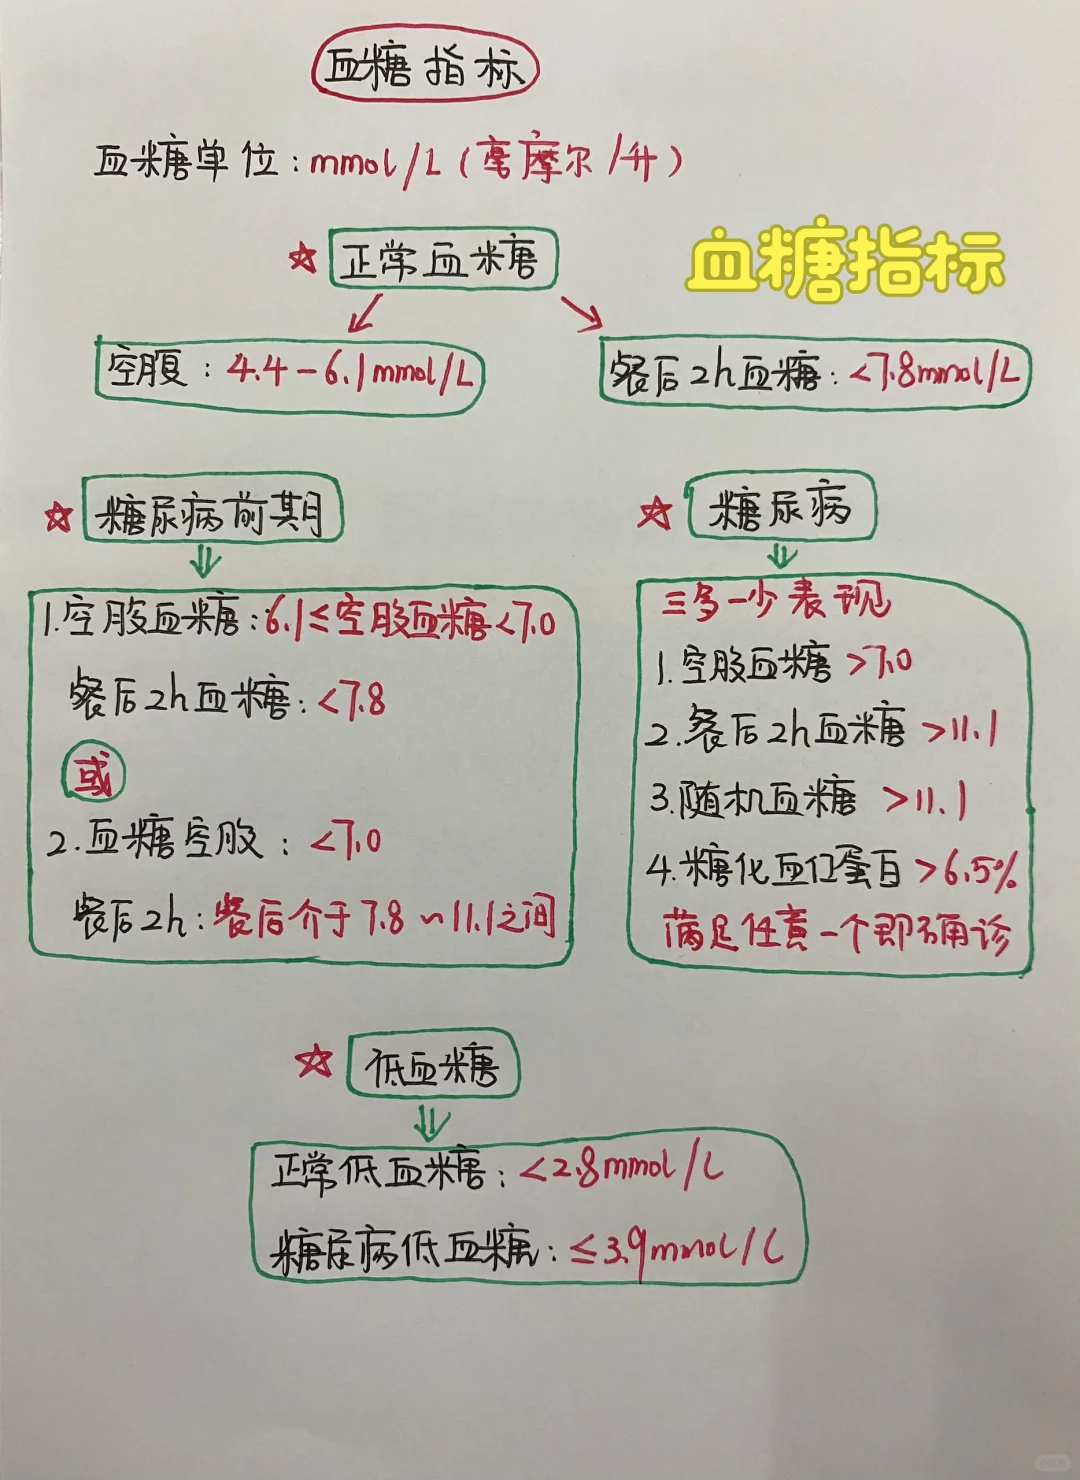 血糖指标
血糖单位:mmol/L(毫摩尔/升)
血糖指标
☆ 正常血糖
空腹:4.4-6.1mmol/L
餐后2h血糖:<7.8mmol/L
☆ 糖尿病前期
1.空股血糖:6.1≤空股血糖<7.0
餐后2h血糖:<7.8
或
2.血糖空股:<7.0
餐后2h:餐后介于7.8~11.1之间
☆ 糖尿病
三多一少表现
1.空股血糖>7.0
2.餐后2h血糖>11.1
3.随机血糖>11.1
4.糖化血红蛋白>6.5%
满足任意一个即可确诊
☆ 低血糖
正常低血糖:<2.8mmol/L
糖尿病低血糖:≤3.9mmol/L